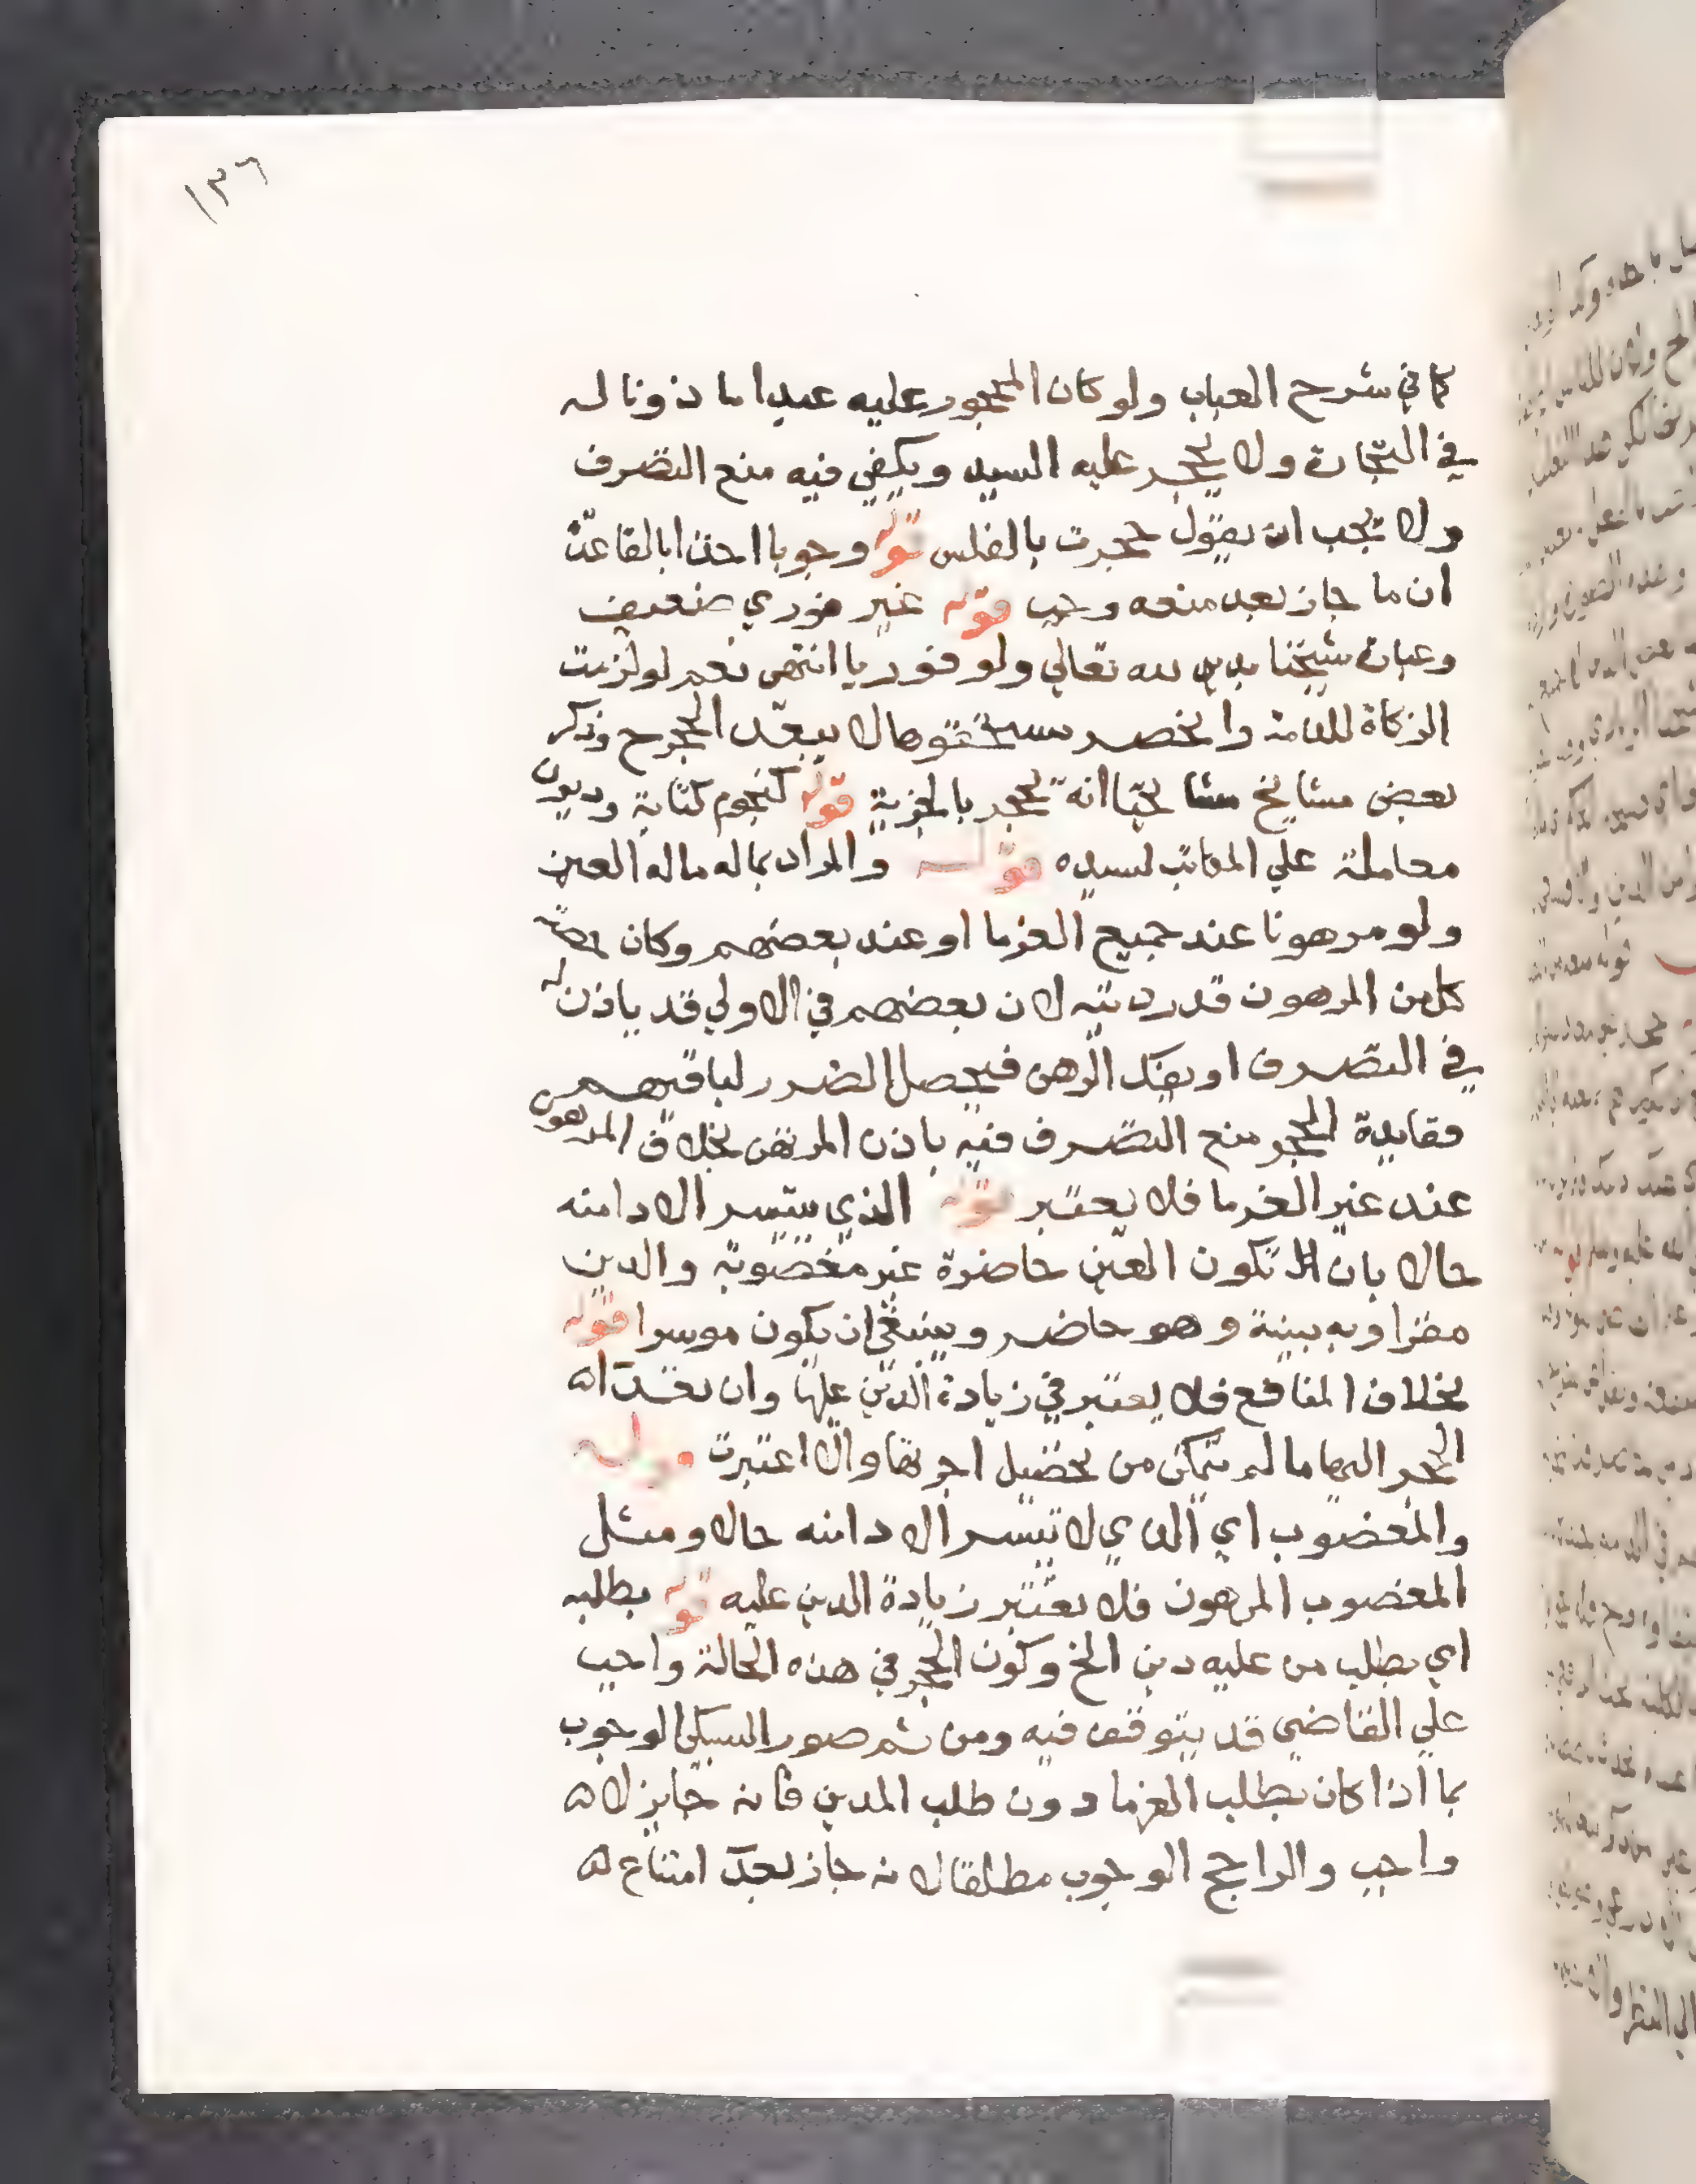 ١٣٦
كما في شرح العباب ولو كان المحجور عليه عبدا ماذونا له
في التجارة ولا يحجر عليه السيد ويكفي فيه منع التصرف
ولا يجب ان يقول حجرت بالفلس قوله وجوبا اخذا بالقاعدة
ان ما جاز بعد منعه وجب قوله غير فوري ضعيف
وعبارة شيخنا لله تعالي ولو فوريا انتهى نعم لو لزمت
الزكاة للذمة وانحصر مستحقوها لا يبعد الحجر وذكر
بعض مشايخ مشايخنا انه يحجر بالجزية قوله كنجوم كتابة وديون
معاملة علي المكاتب لسيده قوله والمراد بماله ماله العين
ولو مرهونا عند جميع الغرما او عند بعضهم وكان
كل من المرهون قدر دينه لان بعضهم في الاولي قد ياذن له
في التصرف او يفك الرهن فيحصل الضرر لباقيهم
ففايدة الحجر منع التصرف فيه باذن المرتهن بخلاف المرهون
عند غير الغرما فلا يعتبر قوله الذي يتيسر الادا منه
حالا بان تكون العين حاضرة غير مغصوبة والدين
مقرا وبه بينة وهو حاضر وينبغي ان يكون موسرا قوله
بخلاف المنافع فلا يعتبر في زيادة الدين عليها وان تعدا
الحجر اليها ما لم يتمكن من تحصيل اجرتها والا اعتبرت قوله
والمغصوب اي الذي لا تيسر الادا منه حالا ومثل
المغصوب المرهون فلا يعتبر زيادة الدين عليه قوله بطلبه
اي بطلب من عليه دين الخ وكون الحجر في هذه الحالة واجب
علي القاضي قد يتوقف فيه ومن ثم صور السبكي الوجوب
بما اذا كان بطلب الغرما دون طلب المدين فانه جايز لا
واجب والراجح الوجوب مطلقا لانه جاز بعد امتناع